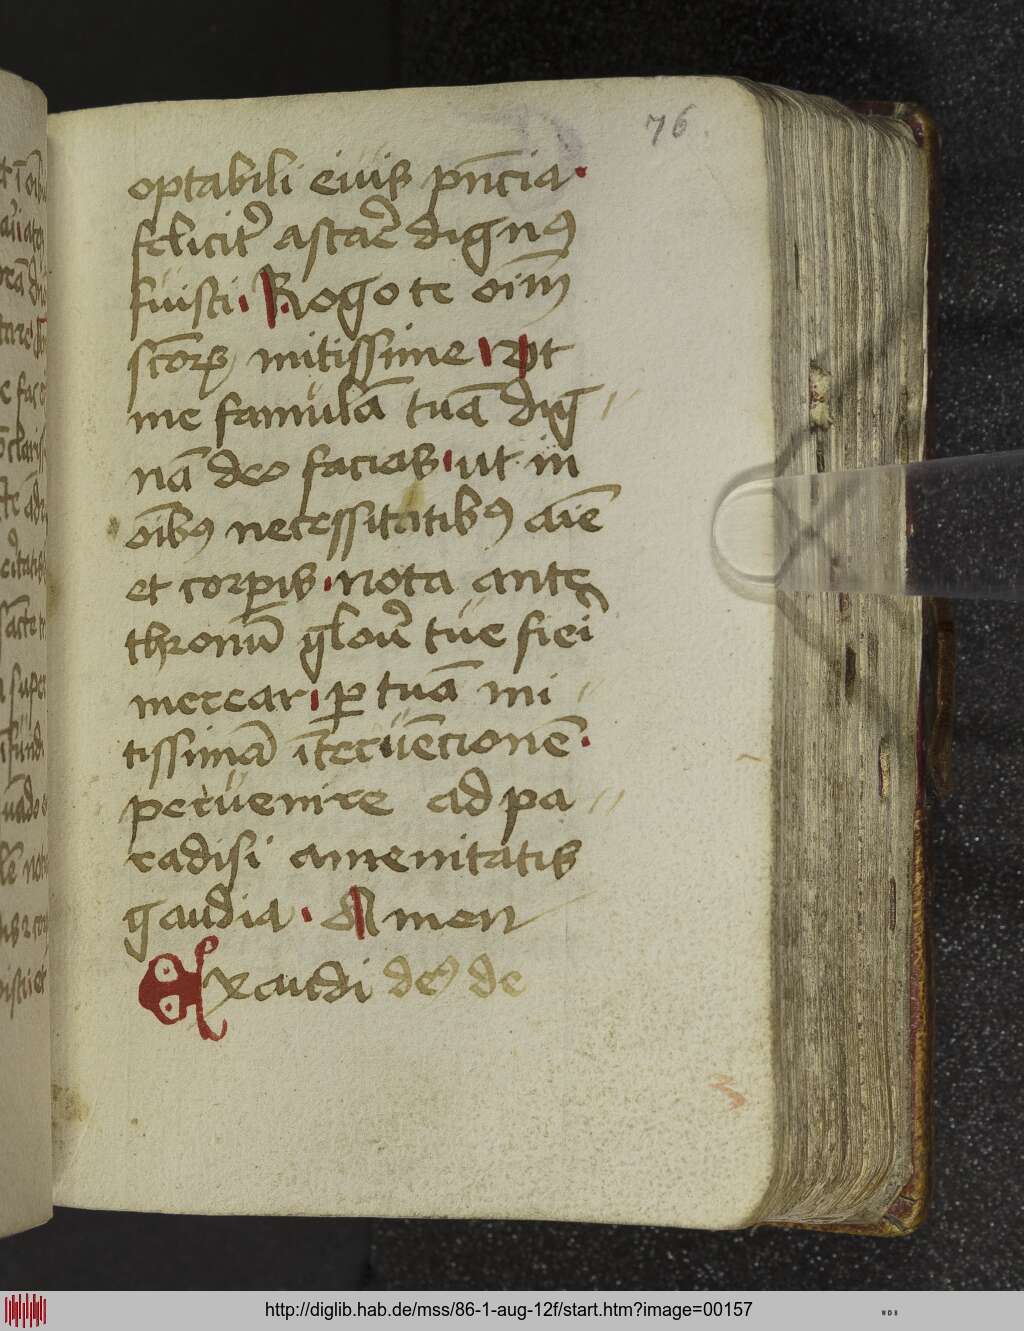 76
optabili eiuis pn̄cia·
felicit᷑ astar᷑e dignꝰ
fuisti· Rogo te oīm
scōrꝝ mitissime Vt
me famulā tuā dig //
nā deo facias ut in
oībꝰ necessitatibꝰ aīe
et corpis nota ante
thronū glorie tue fieri
merear ꝑ tuā mi //
tissimā īteruēcionē·
peruenire ad pa //
radisi amenitatis
gaudia· Amen
Exaudi deꝰ de
http://diglib.hab.de/mss/86-1-aug-12f/start.htm?image=00157
WDB